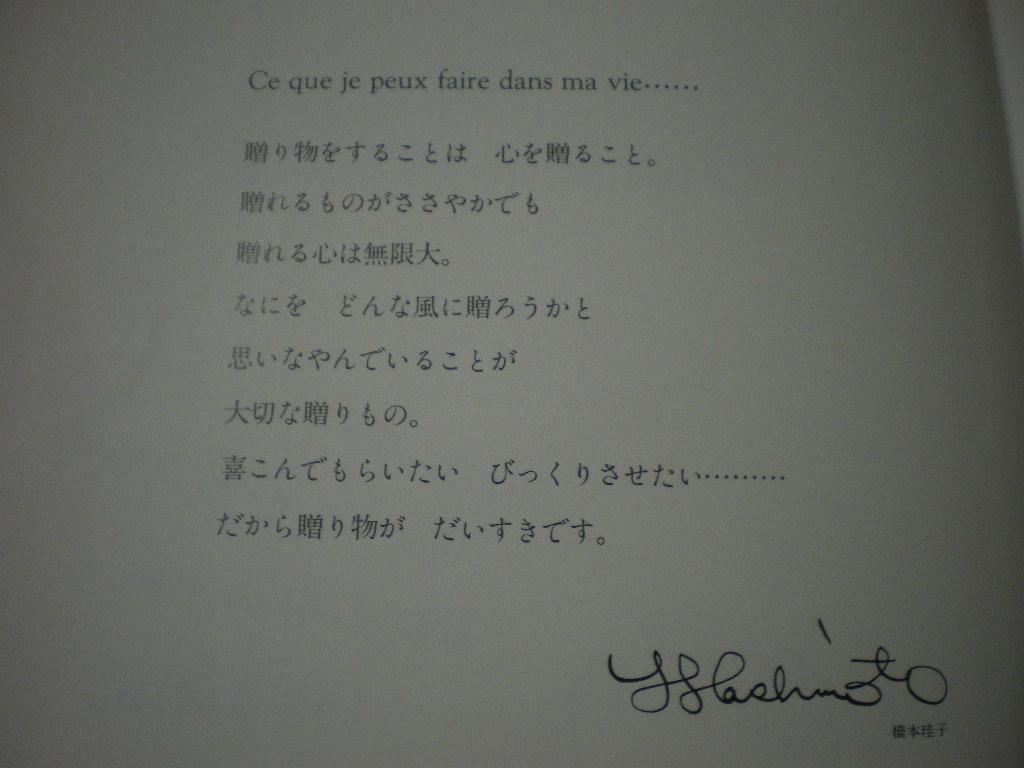 Ce que je peux faire dans ma vie……
贈り物をすることは　心を贈ること。
贈れるものがささやかでも
贈れる心は無限大。
なにを　どんな風に贈ろうかと
思いなやんでいることが
大切な贈りもの。
喜こんでもらいたい　びっくりさせたい………
だから贈り物が　だいすきです。
Hashimoto
橋本珪子